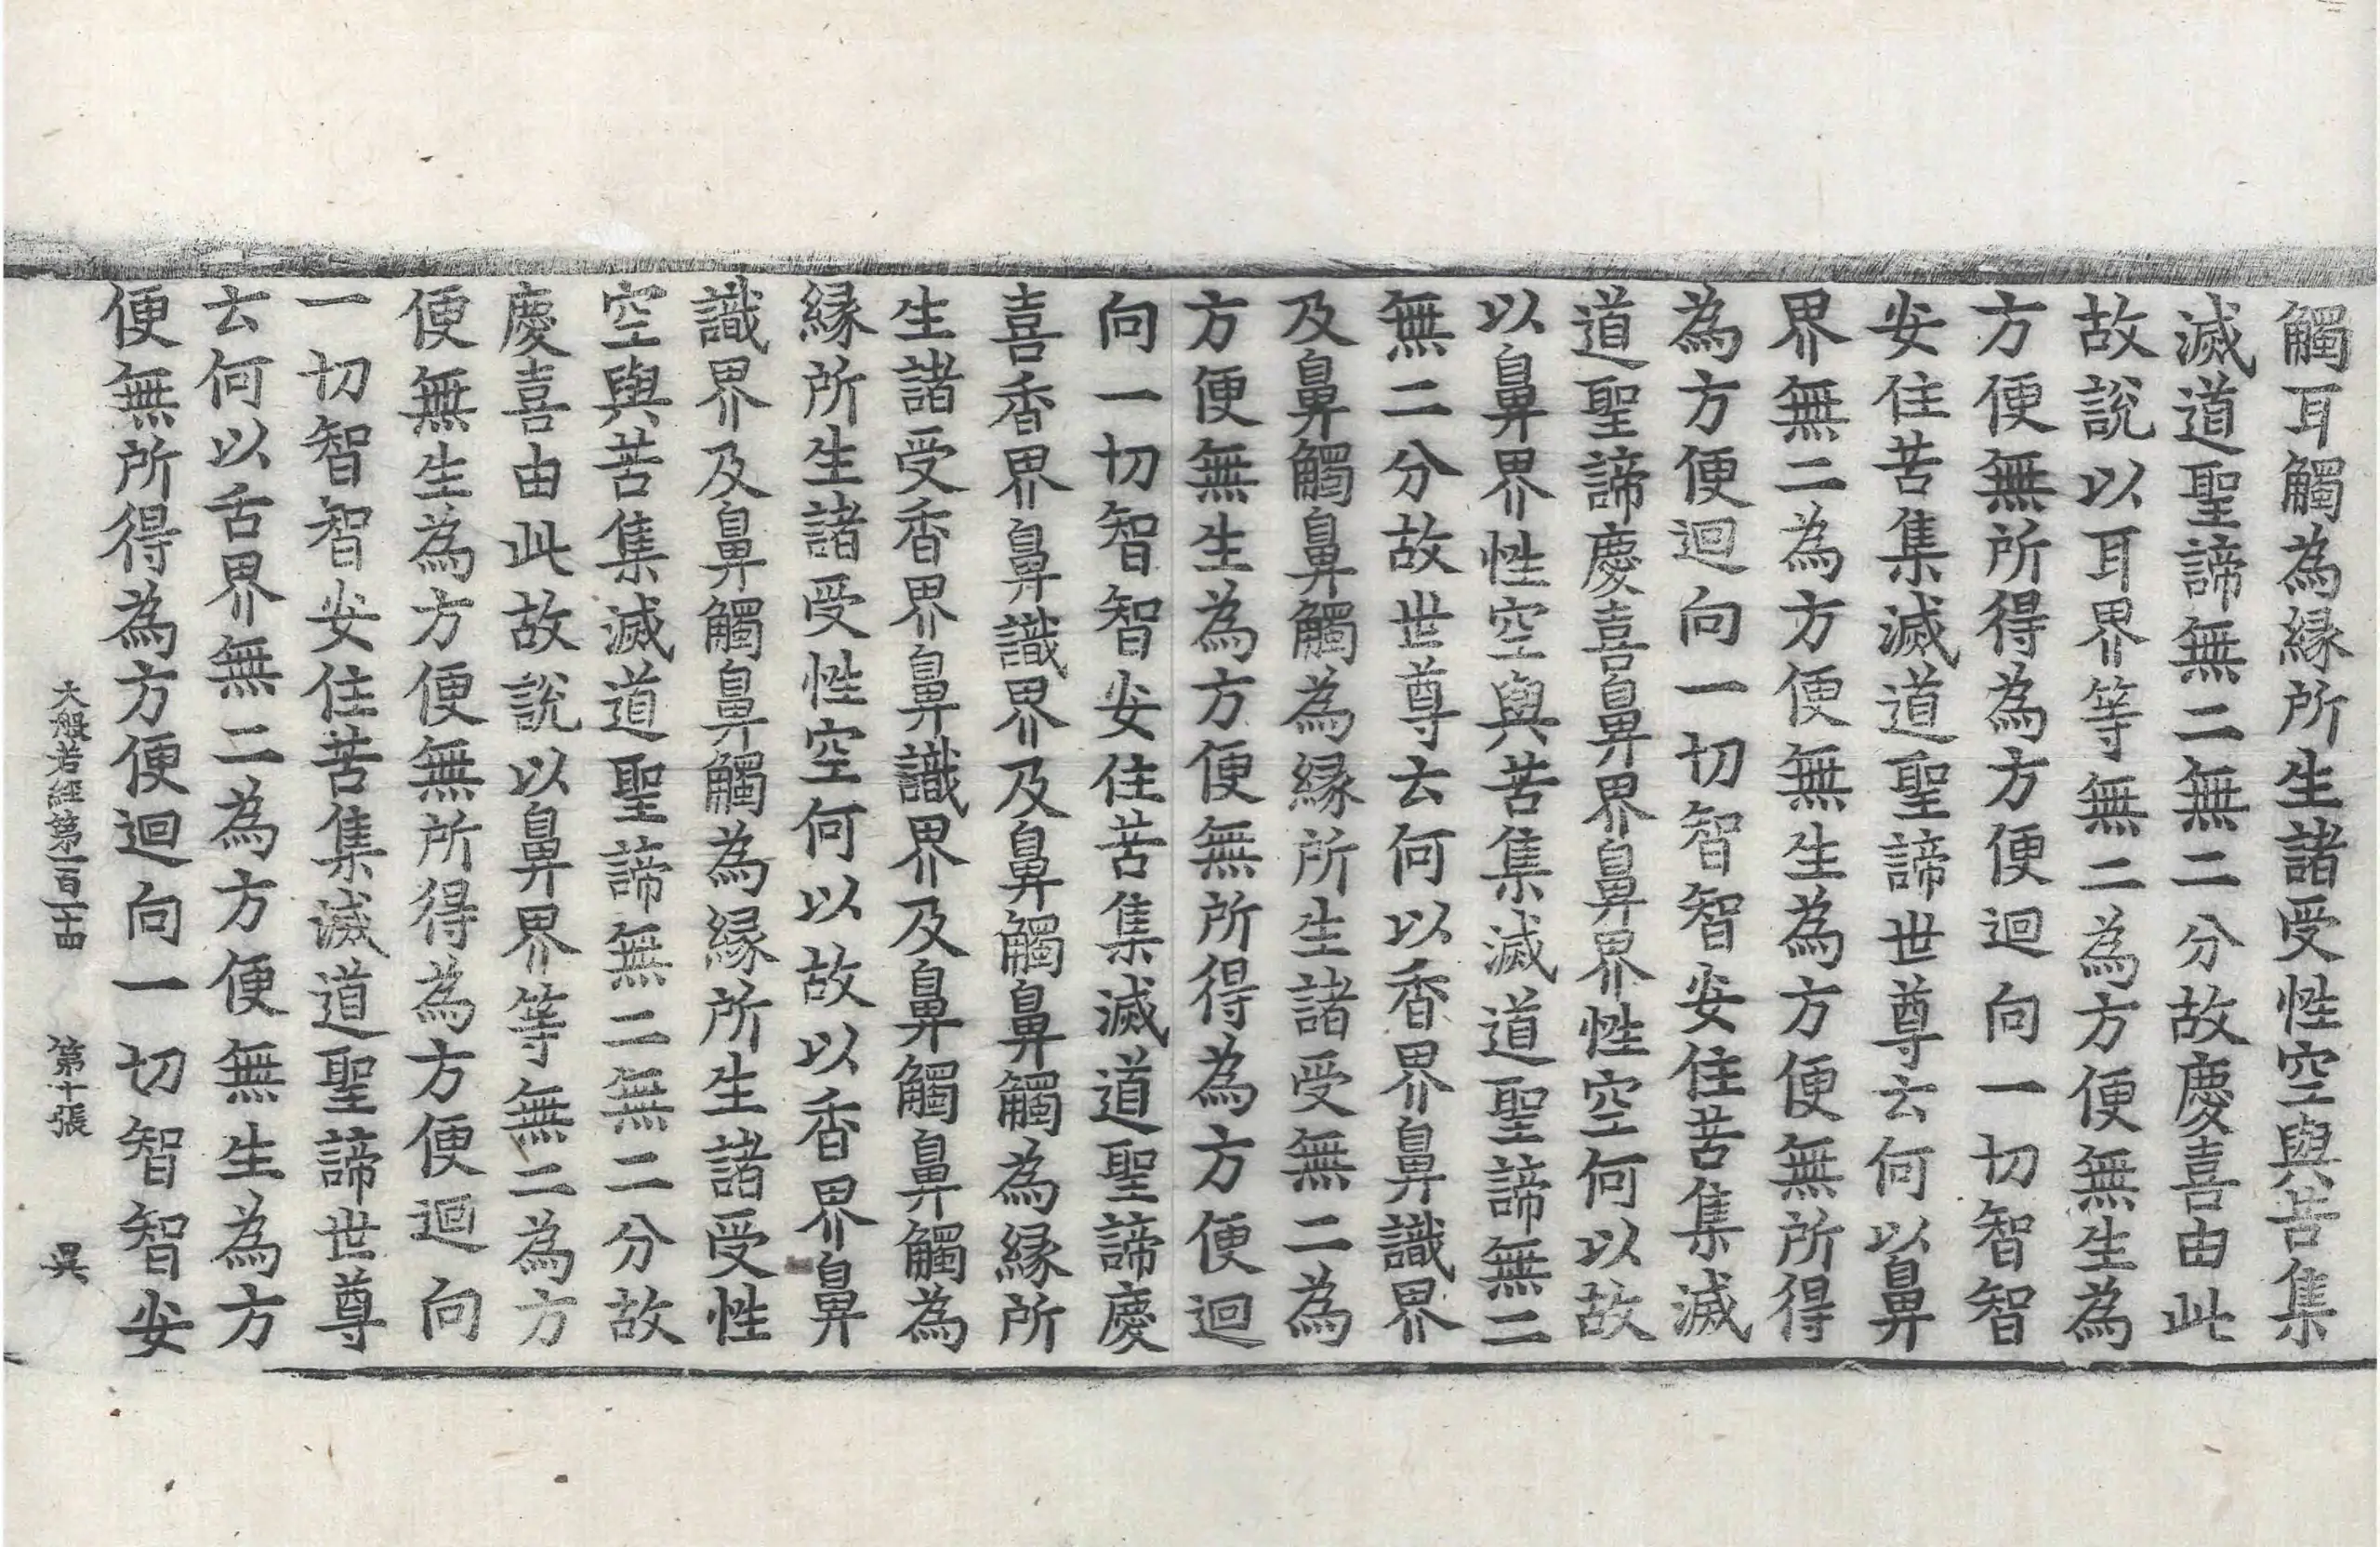 觸耳觸為縁所生諸受性空與苦集
滅道聖諦無二無二分故慶喜由此
故說以耳界等無二為方便無生為
方便無所得為方便迴向一切智智
安住苦集滅道聖諦世尊云何以鼻
界無二為方便無生為方便無所得
為方便迴向一切智智安住苦集滅
道聖諦慶喜鼻界鼻界性空何以故
以鼻界性空與苦集滅道聖諦無二
無二分故世尊云何以香界鼻識界
及鼻觸鼻觸為縁所生諸受無二為
方便無生為方便無所得為方便迴
向一切智智安住苦集滅道聖諦慶
喜香界鼻識界及鼻觸鼻觸為縁所
生諸受香界鼻識界及鼻觸鼻觸為
縁所生諸受性空何以故以香界鼻
識界及鼻觸鼻觸為縁所生諸受性
空與苦集滅道聖諦無二無二分故
慶喜由此故說以鼻界等無二為方
便無生為方便無所得為方便迴向
一切智智安住苦集滅道聖諦世尊
云何以舌界無二為方便無生為方
便無所得為方便迴向一切智智安
大般若經第一百一十四 第十張 昃